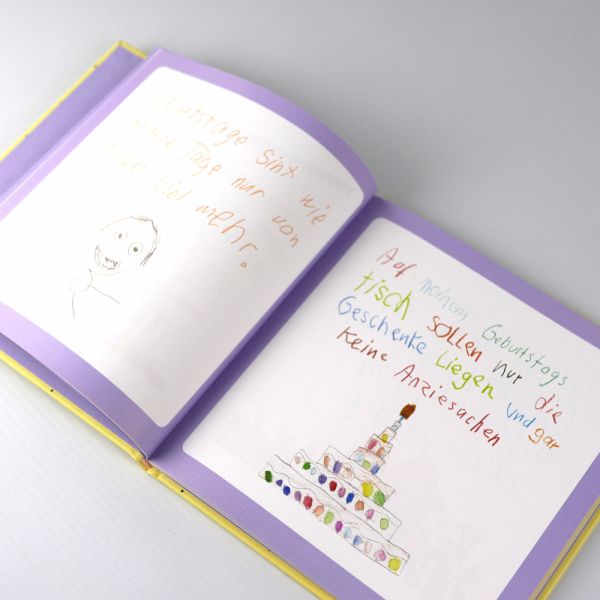 burtstage sinx wie
andere Tage nur von
viel mehr.
Auf meinem Geburtstags
tisch sollen nur die
Geschenke Liegen und gar
Keine Anziesachen